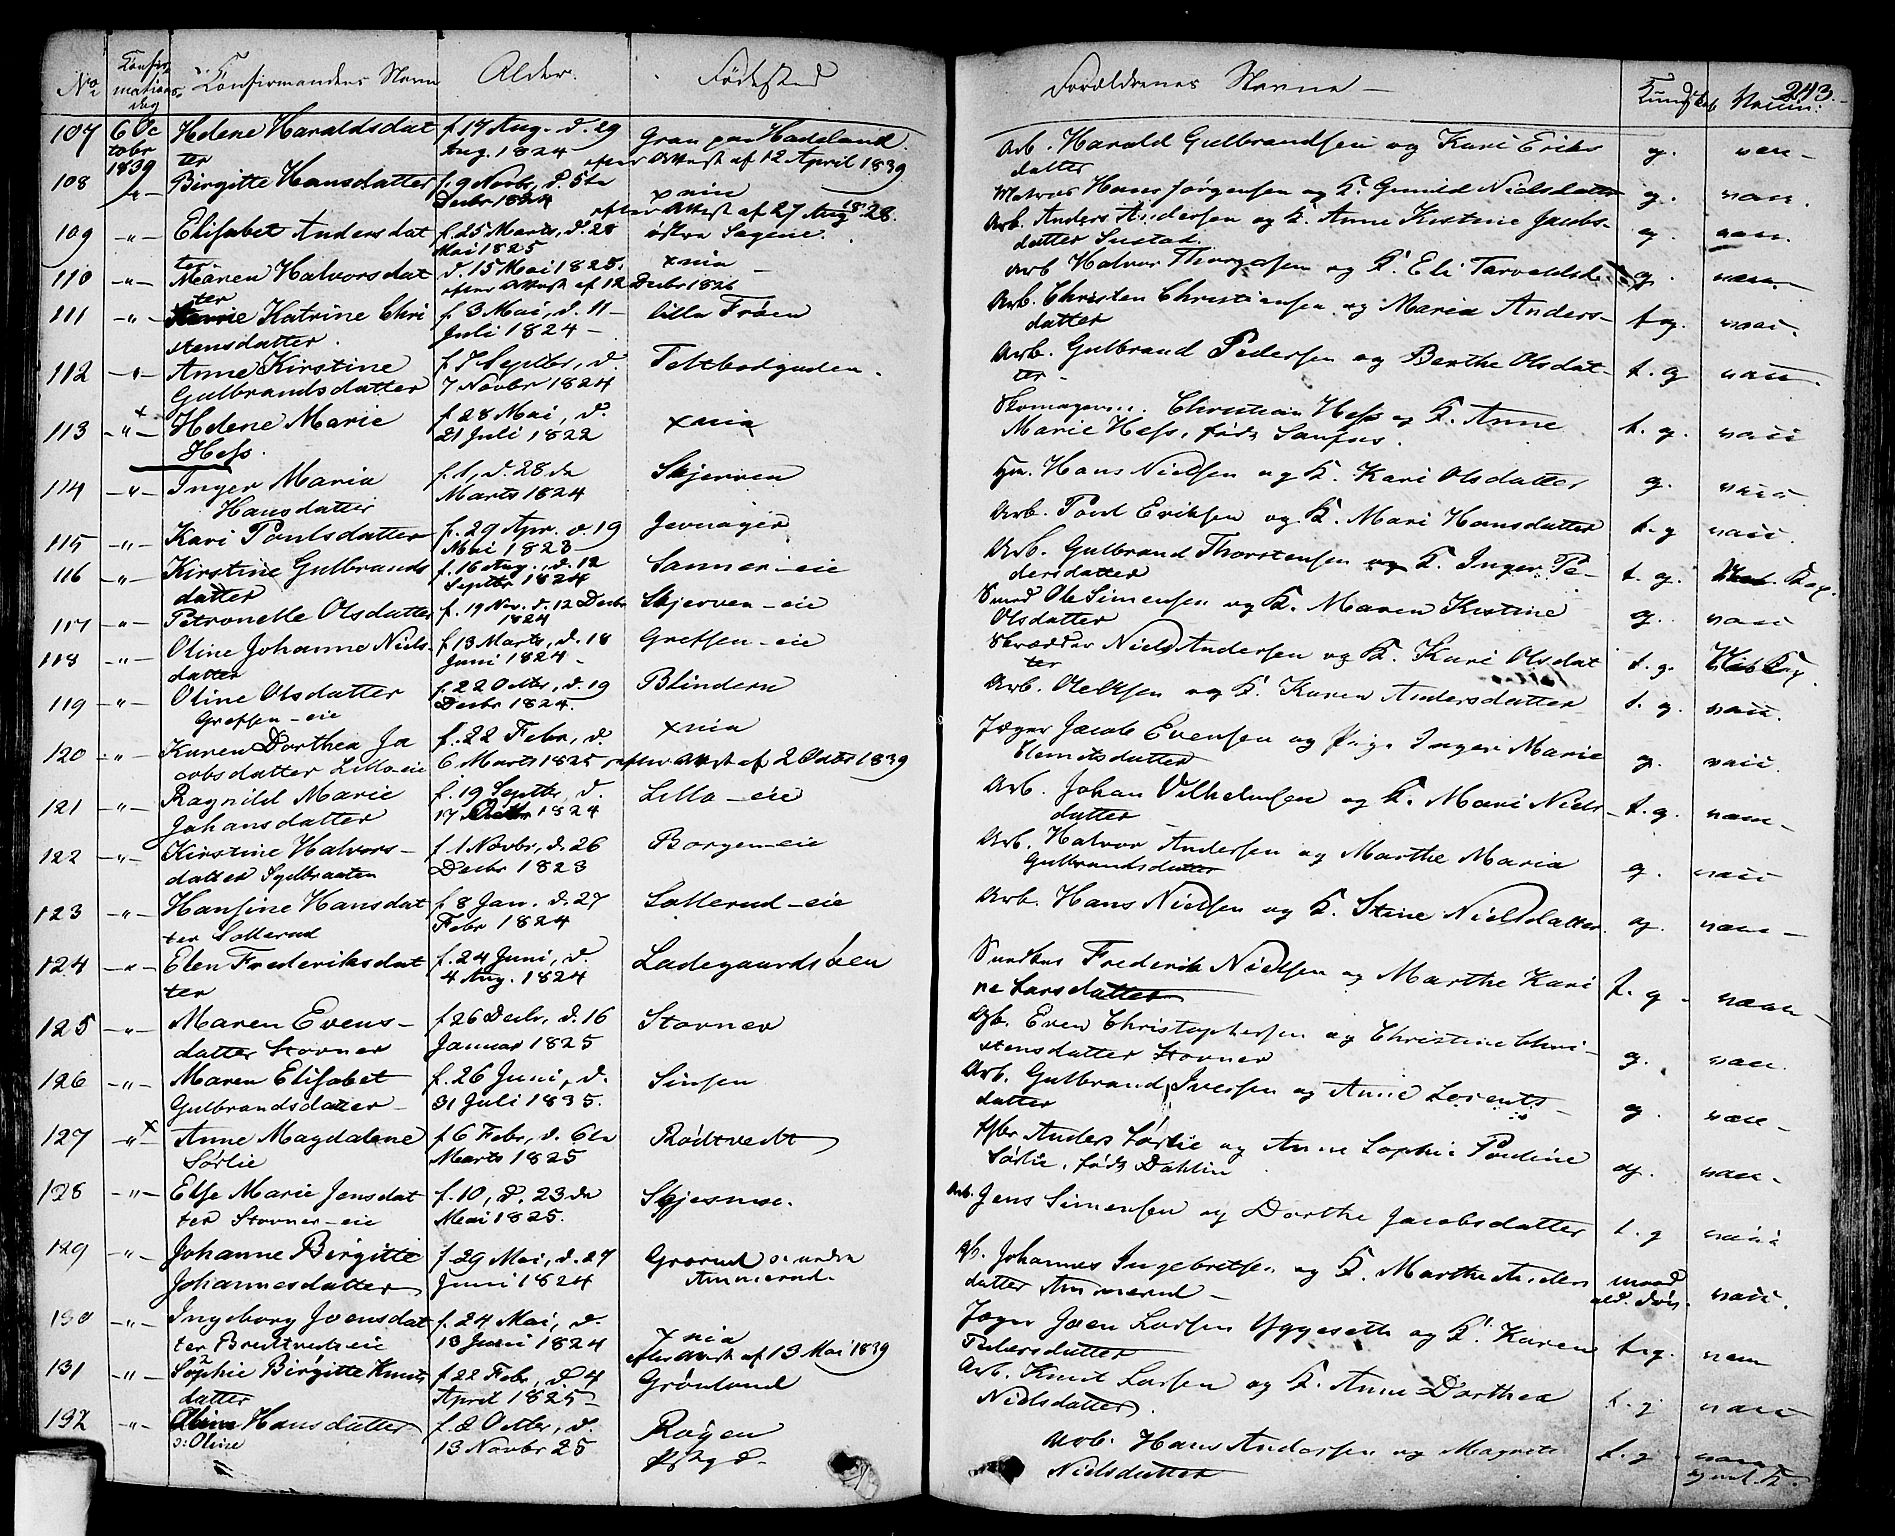 243.
No Confirmations Dag Confirmandens Navn Alder. Fødested Forældrenes Navne Kundskab Vaccin:
107 6 Octobr 1839 Helene Haraldsdatter f. 17 Aug. d. 29 Aug. 1824 Gran paa Hadeland. efter Attest af 12 April 1839 Arb. Harald Gulbrandsen og Kari Eriksdatter g. vac
108 -"- Birgitte Hansdatter f. 9 Novbr, d. 5te Decbr 1824 xnia efter Attest af 27 Aug 1828. Matros Hans Jørgensen og K. Gunild Nielsdatter g. vacc.
109 -"- Elisabet Andersdatter f. 25 Marts, d. 28 Mai 1825 østre Sagene. Arb. Anders Andersen og K. Anne Kistine Jacobsdatter g. vacc.
110 -"- Maren Halvorsdatter d. 15 Mai 1825. efter Attest af 12 Decbr 1826 xnia Arb Halvor Thorgersen og K. Eli g. vacc.
111 -"- Katrine Christensdatter. f. 3 Mai, d. 11 Juli 1824 lille Frøen Arb. Christen Christensen og Maria Andersdatter t. g. vacc.
112 -"- Anne Kirstine Gulbrandsdatter f. 7 Septbr, d. 7 Novbr 1824 Teltbodgaden. Arb. Gulbrand Pedersen og Berthe Olsdatter t. g vacc.
113 -"- x Helene Marie Hess. f. 28 Mai, d. 21 Juli 1822 xnia Skomagersv. Christian Hess og K. Anne Marie Hess, født t. g. vacc
114 -"- Inger Maria Hansdatter f. 1, d. 28de Marts 1824 Skjerven Hans Nielsen og K. Kari Olsdatter g. vacc
115 -"- Kari Poulsdatter f. 29 Apr. d. 19 Mai 1823 Jevnager Arb. Poul Eriksen og K. Mari Hansdatter t. g vacc.
116 -"- Kirstine Gulbrandsdatter f. 16 Aug., d. 12 Septbr 1824 Sanner-eie Arb. Gulbrand Thorstensen og K. Inger Pedersdatter t. g. Kop.
117 -"- Petronelle Olsdatter f. 19 Nov. d. 12 Decbr 1824 Skjerven-eie Smed Ole Simensen og K. Maren Kistine Olsdatter g. vacc
118 -"- Oline Johanne Nielsdatter f. 13 Marts, d. 18 Juni 1824 Grefsen-eie Skrædder Niels Andersen og K. Kari Olsdatter t. g. Kop
119 -"- Oline Olsdatter Grefsen-eie f. 22 Octbr, d. 19 Decbr 1824. Blindern Arb. Ole Olsen og K. Karen Andersdatter t. g. vacc.
120 -"- Karen Dorthea Jacobsdatter Lillo-eie f. 22 Febr, d. 6 Marts 1825 xnia efter Attest af 2 Octbr 1839 Jæger Jacob Evensen og Pige Inger Marie Clemetsdatter g. vacc.
121 -"- Ragnild Marie Johansdatter f. 19 Septbr, d. 17 Octbr 1824 Lillo-eie Arb. Johan Vilhelmsen og K. Mari Nielsdatter t. g. vacc
122 -"- Kirstine Halvorsdatter f. 1 Novbr, d. 26 Decbr 1823 Borgen-eie Arb. Halvor Andersen og Marthe Maria Gulbrandsdatter g. vacc
123 -"- Hansine Hansdatter Sollerud f. 8 Jan. d. 27 Febr 1824 Sollerud-eie Arb. Hans Nielsen og K. Stine Nielsdatter g. vacc
124 -"- Elen Frederiksdatter f. 24 Juni, d. 4 Aug. 1824 Ladegaardsøen Frederik Nielsen og Marthe Karine Larsdatter t. g. vacc
125 -"- Maren Evensdatter Stovner f. 26 Decbr, d. 16 Januar 1825 Stovner Even Christophersen og Christine Christensdatter Stovner g. vacc.
126 -"- Maren Elisabet Gulbrandsdatter f. 26 Juni, d. 31 Juli 1835. Sinsen Arb. Gulbrand Iversen og Anne Lorentsdatter g. vacc
127 -"- x Anne Magdalene Sørlie f. 6 Febr, d. 6te Marts 1825 Rødtvedt Anders Sørlie og Anne Sophie Pouline Sørlie, født Dahlin g. vacc
128 -"- Else Marie Jensdatter Stovner-eie f. 10, d. 23de Mai 1825. Arb. Jens Simensen og Dorthe Jacobsdatter t. g vacc
129 -"- Johanne Birgitte Johannesdatter f. 29 Mai, d. 27 Juni 1824 Grorud Ammerud. Johannes Ingebretsen og K. Marthe Andersdatter Ammerud vacc.
130 -"- Ingeborg Joensdatter Bredtvedt-eie f. 24 Mai, d. 13 Juni 1824 xnia efter Attest af 13 Mai 1839 Jæger Joen Larsen Yggeseth og K. Karen Pedersdatter t. g. vacc
131 -"- Sophie Birgitte Knutsdatter f. 22 Febr, d 4 April 1825 Grønland Arb. Knut Larsen og K. Anne Dorthea Nielsdatter. t. g vacc
132 -"- Hansdatter o: Oline f. 2 Octbr, d. 13 Novbr 25 Røgen Arb. Hans Andersen og Magnete Nielsdatter t. g